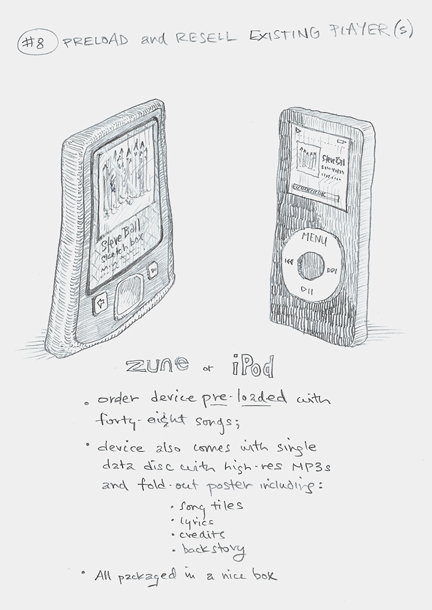 #8 PRELOAD and RESELL EXISTING PLAYER(s)
Steve Ball
sketch box
Steve Ball
MENU
zune or iPod
• order device pre-loaded with
forty-eight songs;
• device also comes with single
data disc with high-res MP3s
and fold-out poster including:
• song titles
• lyrics
• credits
• backstory
• All packaged in a nice box